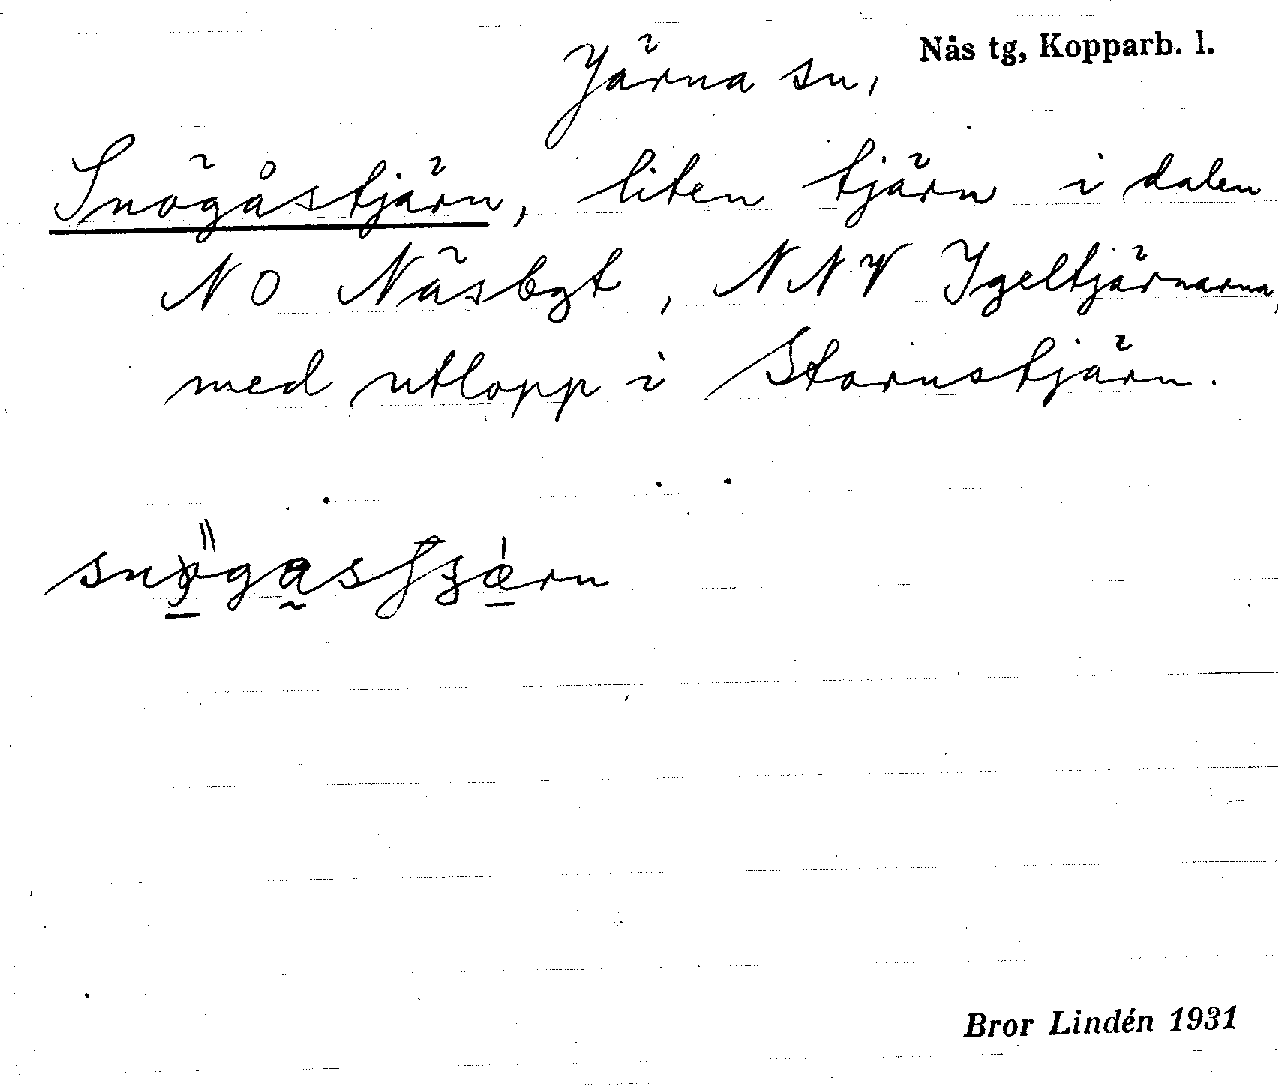 Nås tg, Kopparb. l.
Järna sn,
Snögåstjärn, liten tjärn i dalen
NO Näsbgt, NNV Igeltjärnarna,
med utlopp i Stornstjärn.
Bror Lindén 1931